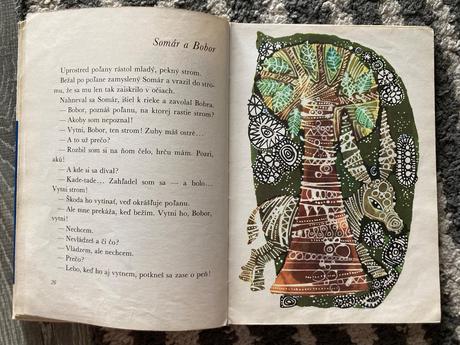 Somár a Bobor
Uprostred poľany rástol mladý, pekný strom.
Bežal po poľane zamyslený Somár a vrazil do stro-
mu, že sa mu len tak zaiskrilo v očiach.
Nahneval sa Somár, išiel k rieke a zavolal Bobra.
— Bobor, poznáš poľanu, na ktorej rastie strom?
— Akoby som nepoznal!
— Vytni, Bobor, ten strom! Zuby máš ostré...
— A to už prečo?
— Rozbil som si na ňom čelo, hrču mám. Pozri,
akú!
— A kde si sa díval?
— Kade-tade... Zahľadel som sa — a bolo...
Vytni strom!
— Škoda ho vytínať, veď okrášľuje poľanu.
— Ale mne prekáža, keď bežím. Vytni ho, Bobor,
vytni!
— Nechcem.
— Nevládzeš a či čo?
— Vládzem, ale nechcem.
— Prečo?
— Lebo, keď ho aj vytnem, potkneš sa zase o peň!
26